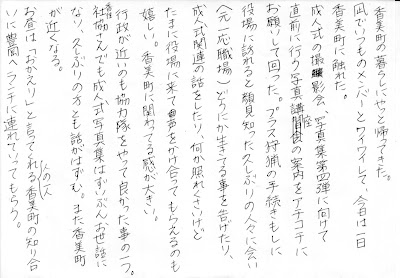 香美町の暮らしへやっと帰ってきた。
凪でいつものメンバーとワイワイして、今日は一日
香美町に触れた。
成人式の撮影会(写真集第四弾)に向けて
直前に行う写真講習の案内をアチコチに
お願いして回った。プラス狩猟の手続きもしに
役場に訪れると顔見知った久しぶりの人々に会い
(元・応職場)どうにか生きてる事を告げたり、
成人式関連の話をしたり、何か照れくさいけど
たまに役場に来て声をかけ合ってもらえるのも
嬉しい。香美町に関わってる感が大きい。
行政が近いのも協力隊をやって良かった事の一つ。
社協さんでも成人式写真集はずいぶんお世話に
なり、久しぶりの方とも話がはずむ。また香美町
が近くなる。
お昼は「おかえり」と言ってくれる香美町の知り合いの一人
に豊岡へランチに連れていってもらう。